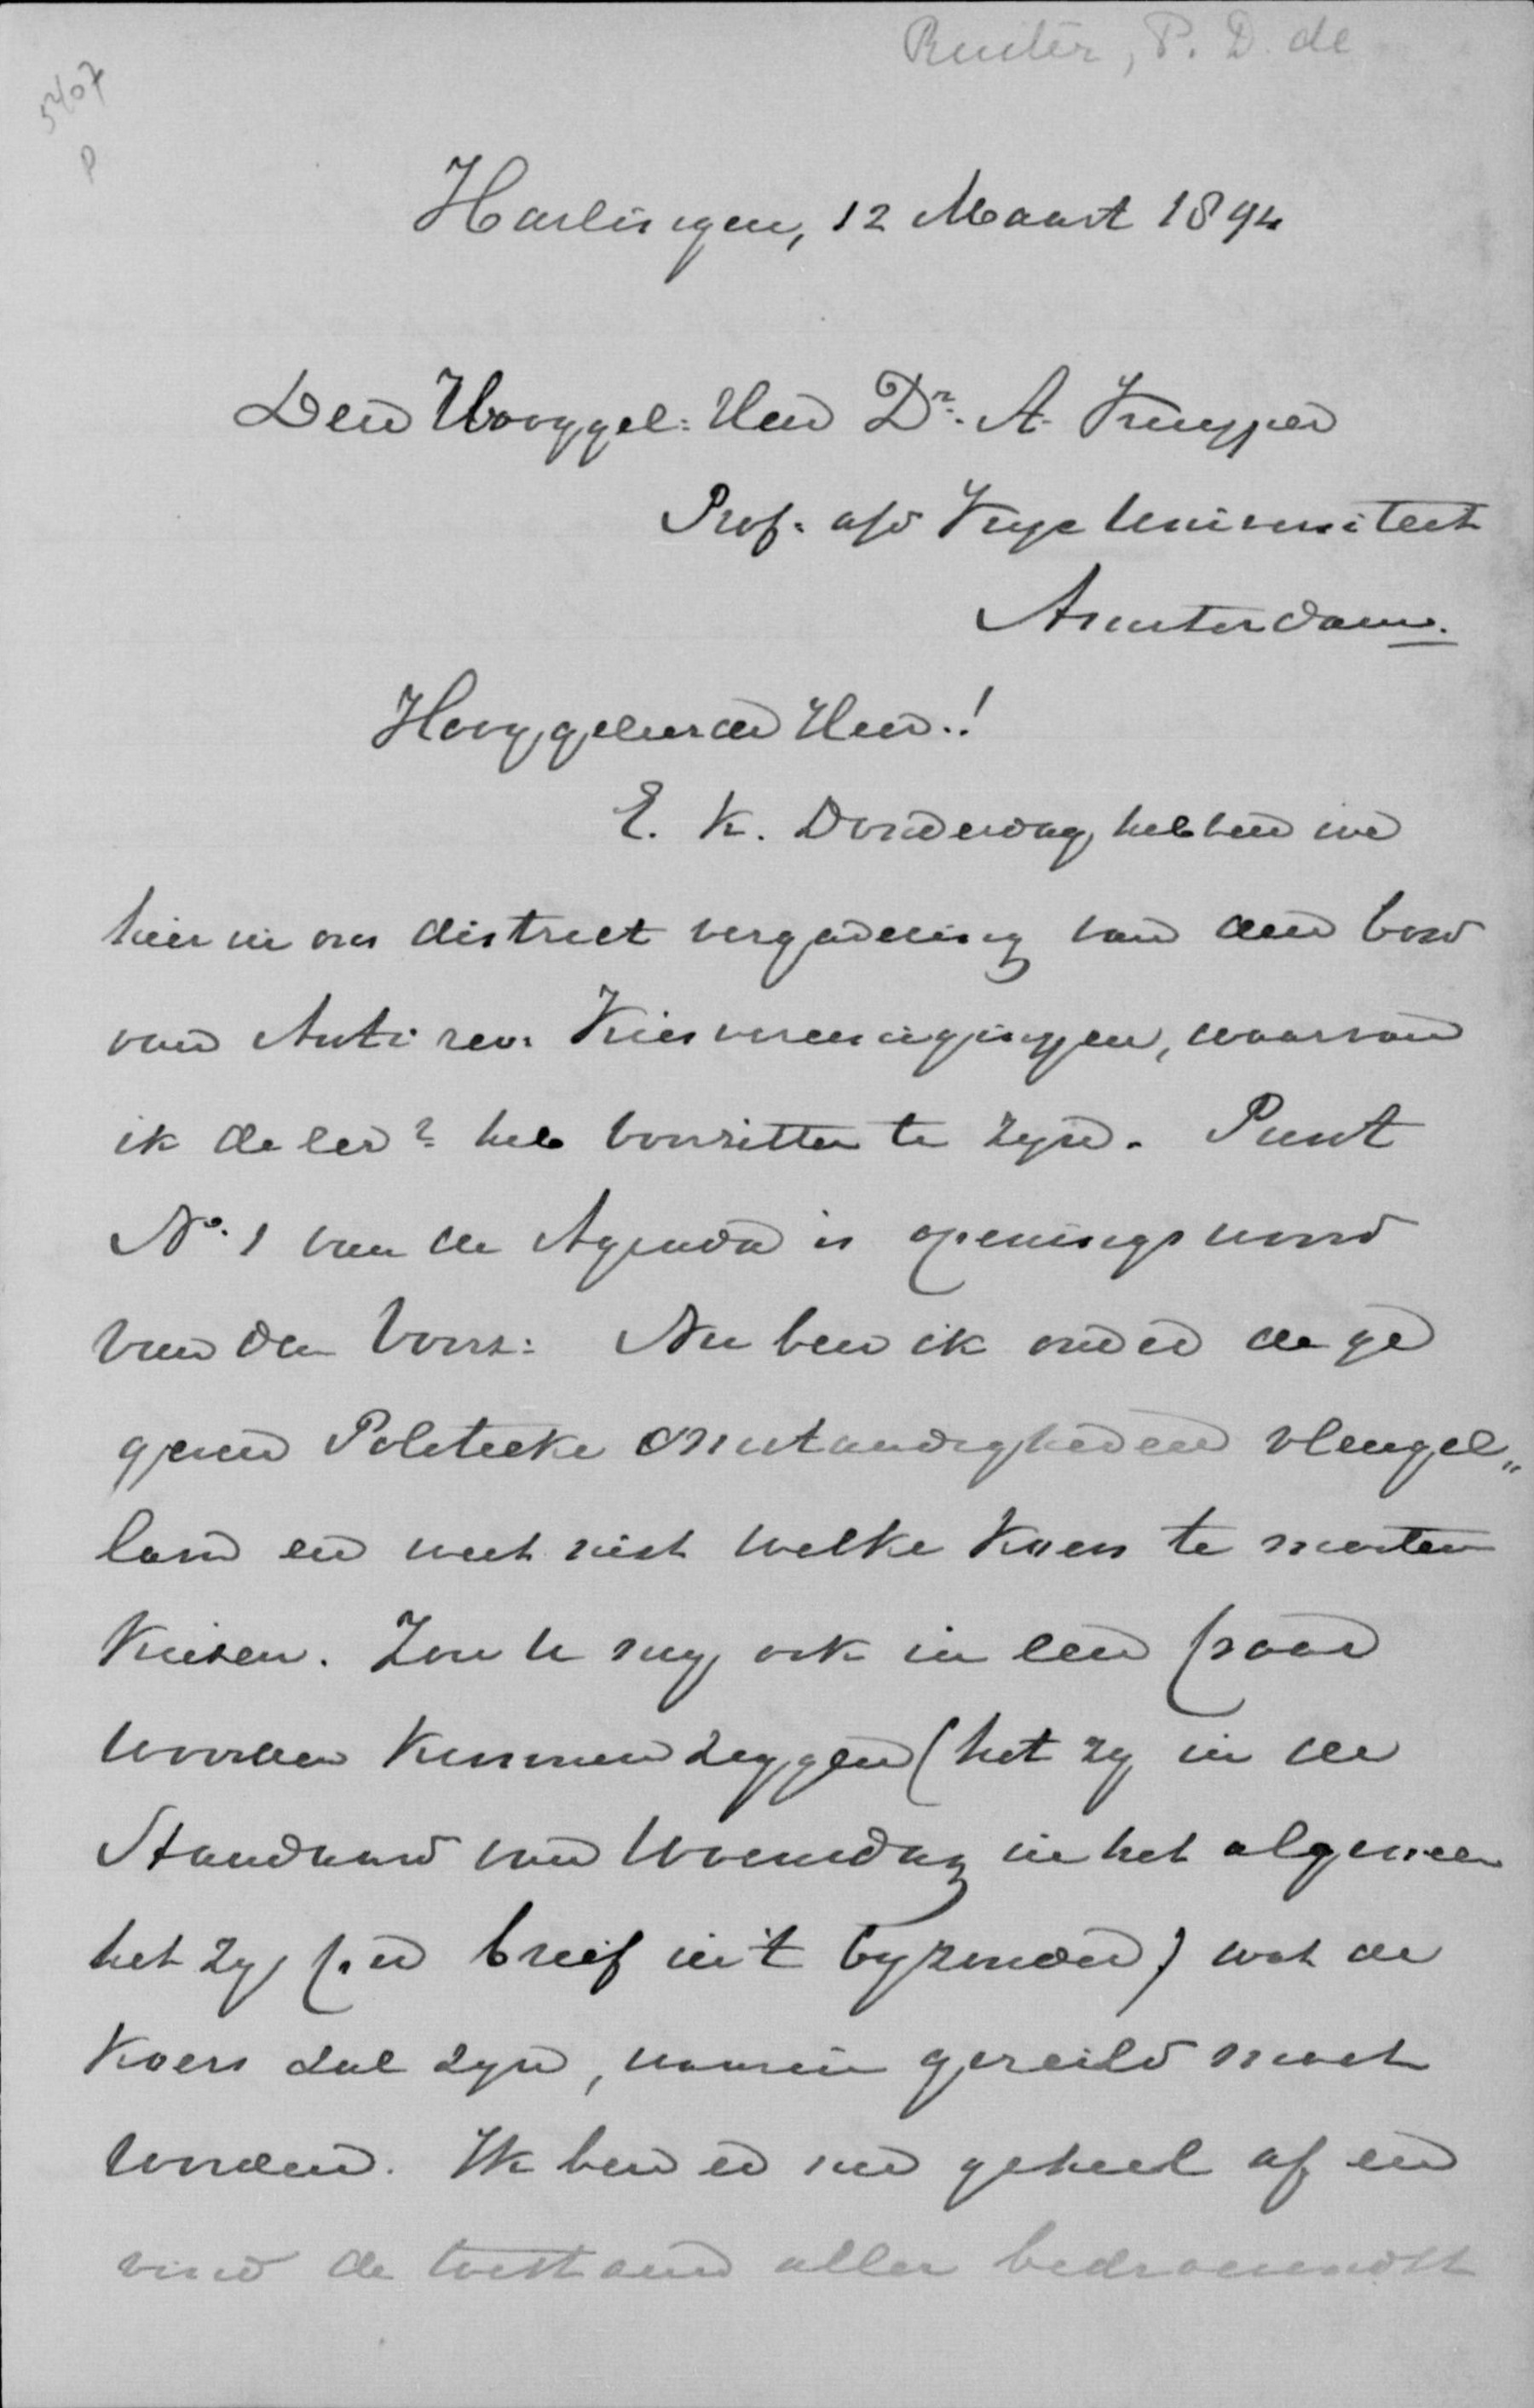 Ruiter, P. D. de
5407
P
Harlingen, 12 Maart 1894
Den Hooggel: Heer Dr. A. Kuyper
Prof. a/d Vrye Universiteit
Amsterdam.
Hooggeleerde Heer.!
E. K. Donderdag hebben we
hier in ons district vergadering van den bond
van Anti rev: Kiesvereenigingen, waarvan
ik de eer heb voorzitter te zyn. Punt
No. 1 van de Agenda is openingswoord
van den Voorz: Nu ben ik onder de ge
geven Politieke omstandigheden vleugel„
lam en weet niet welke Koers te moeten
Kiezen. Zou U my ook in een paar
woorden Kunnen zeggen (het zy in de
Standaard van Woensdag in het algemeen
het zy per brief in 't byzonder) wat de
Koers zal zyn, waarin gezeild moet
worden. Ik ben er nu geheel af en
vind de toestand aller bedroevendst